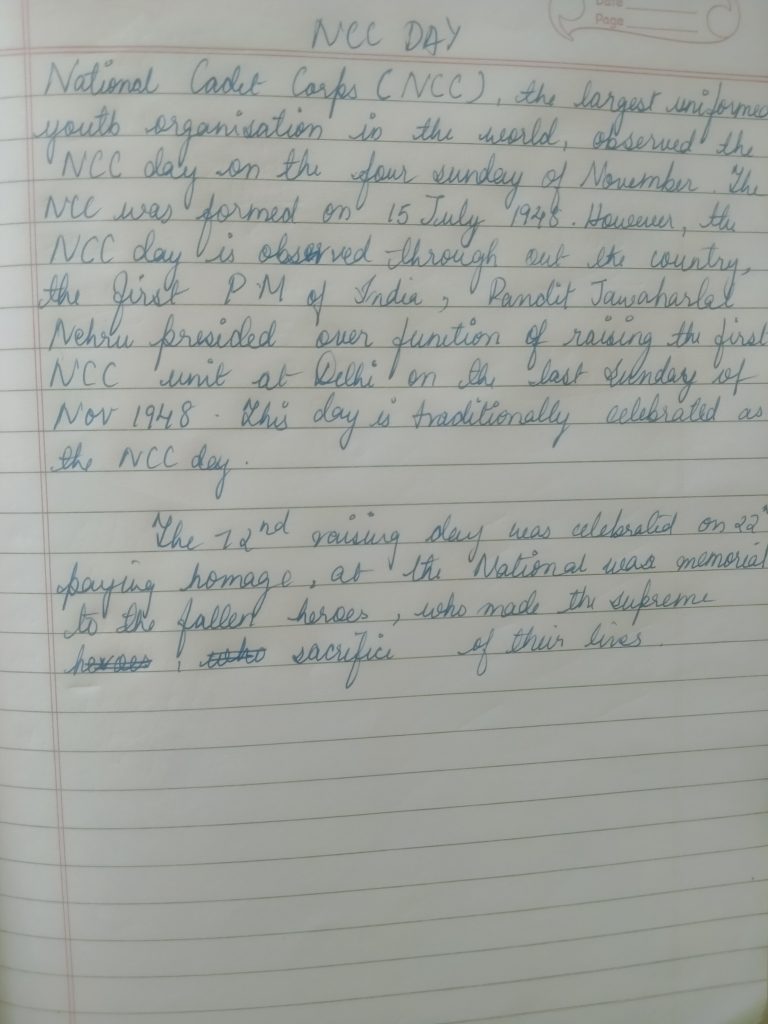 Date
Page
NCC DAY
National Cadet Corps (NCC), the largest uniformed
youth organisation in the world, observed the
NCC day on the four sunday of November. The
NCC was formed on 15 July 1948. However, the
NCC day is observed through out the country,
the first P.M of India, Pandit Jawaharlal
Nehru presided over function of raising the first
NCC unit at Delhi on the last Sunday of
Nov 1948. This day is traditionally celebrated as
the NCC day.
The 72nd raising day was celebrated on 22
paying homage, at the National war memorial
to the fallen heroes, who made the supreme
heroes, who sacrifici of their lives.